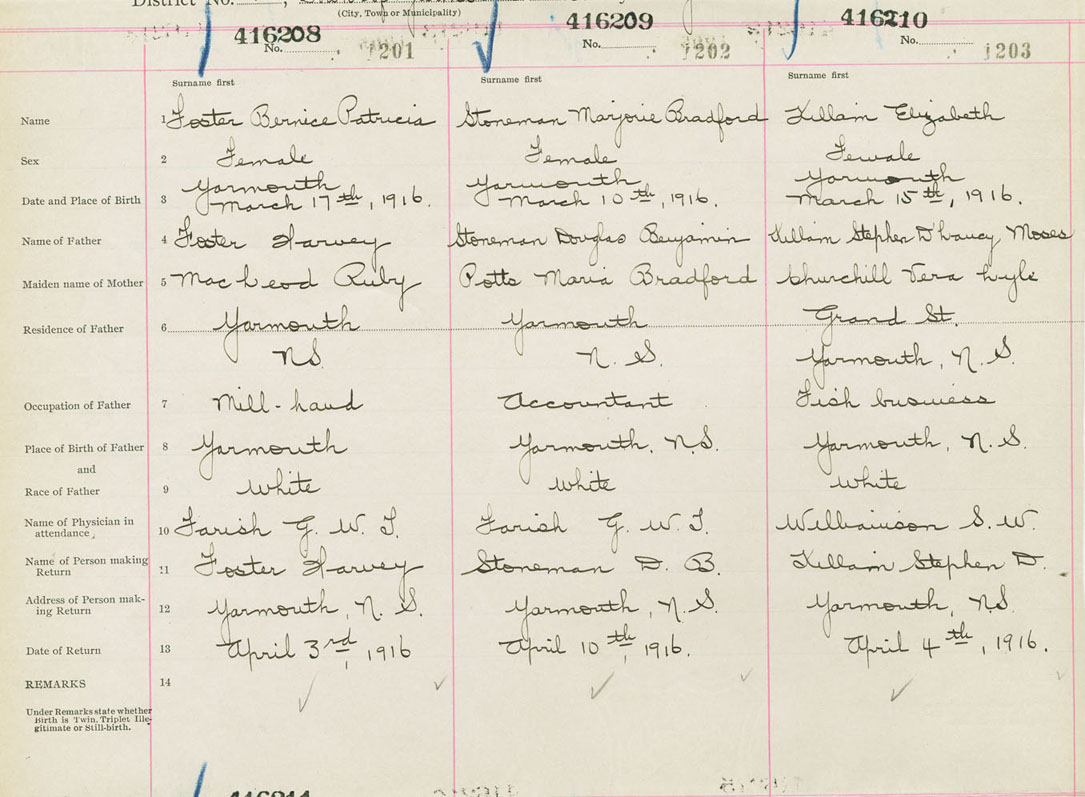 District No.
(City, Town or Municipality)
416208 416209 416210
No. 1201 No. 1202 No. 1203
Surname first Surname first Surname first
Name 1 Foster Bernice Patricia Stoneman Marjorie Bradford Killam Elizabeth
Sex 2 Female Female Female
Yarmouth Yarmouth Yarmouth
Date and Place of Birth 3 March 17th, 1916. March 10th, 1916. March 15th, 1916.
Name of Father 4 Foster Harvey Stoneman Douglas Benjamin Killam Stephen D'Lancy Moses
Maiden name of Mother 5 MacLeod Ruby Potts Maria Bradford Churchill Vera Lyle
Residence of Father 6 Yarmouth Yarmouth Grand St.
N.S. N. S. Yarmouth, N. S.
Occupation of Father 7 Mill-hand Accountant Fish business
Place of Birth of Father 8 Yarmouth Yarmouth, N.S. Yarmouth, N. S.
and
Race of Father 9 White White White
Name of Physician in
attendance, 10 Farish G. W. T. Farish G. W. T. Williamson S. W.
Name of Person making
Return 11 Foster Harvey Stoneman D. B. Killam Stephen D.
Address of Person mak-
ing Return 12 Yarmouth, N. S. Yarmouth, N. S. Yarmouth, N.S.
Date of Return 13 April 3rd, 1916 April 10th, 1916. April 4th, 1916.
REMARKS 14
Under Remarks state whether
Birth is Twin, Triplet Ille-
gitimate or Still-birth.